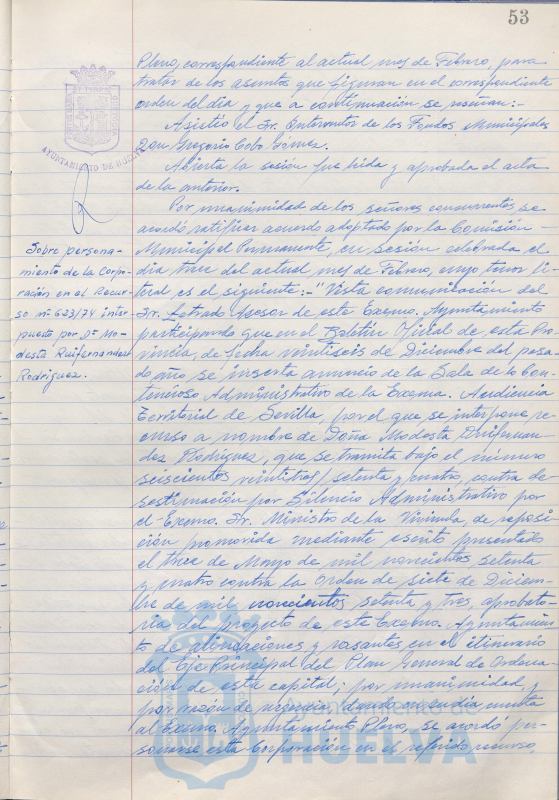 53
Pleno, correspondiente al actual mes de Febrero, para
tratar de los asuntos que figuran en el correspondiente
orden del día y que a continuación se reseñan:-
Asistió el Sr. Interventor de los Fondos Municipales
Don Gregorio Cobo Gómez.
Abierta la sesión fue leida y aprobada el acta
de la anterior.
Sobre persona-
miento de la Corpo-
ración en el Recur-
so nº 623/74 inter
puesto por Dª Mo-
desta Ruifernandez
Rodriguez.
Por unanimidad de los señores concurrentes se
acordó ratificar acuerdo adoptado por la Comisión
Municipal Permanente, en sesión celebrada el
día trece del actual mes de Febrero, cuyo tenor li
teral es el siguiente:- "Vista comunicación del
Sr. Letrado Asesor de este Excmo. Ayuntamiento
participando que en el Boletín Oficial de esta Pro
vincia, de fecha veintiseis de Diciembre del pasa-
do año se inserta anuncio de la Sala de lo Con-
tencioso Administrativo de la Excma. Audiencia
Territorial de Sevilla, por el que se interpone re
curso a nombre de Doña Modesta Ruifernan
dez Rodriguez, que se tramita bajo el número
seiscientos veintitres/setenta y cuatro, contra de-
sestimación por Silencio Administrativo por
el Excmo. Sr. Ministro de la Vivienda, de reposi
ción promovida mediante escrito presentado
el trece de Mayo de mil novecientos setenta
y cuatro contra la Orden de siete de Diciem-
bre de mil novecientos setenta y tres, aprobato-
ria del proyecto de este Excmo. Ayuntamien
to de alineaciones y rasantes en el itinerario
del Eje Principal del Plan General de Ordena
ción de esta capital; por unanimidad, y
por razón de urgencia, dando en su día cuenta
al Excmo. Ayuntamiento Pleno, se acordó per-
sonarse esta Corporación en el referido recurso,
AYUNTAMIENTO DE HUELVA
HUELVA